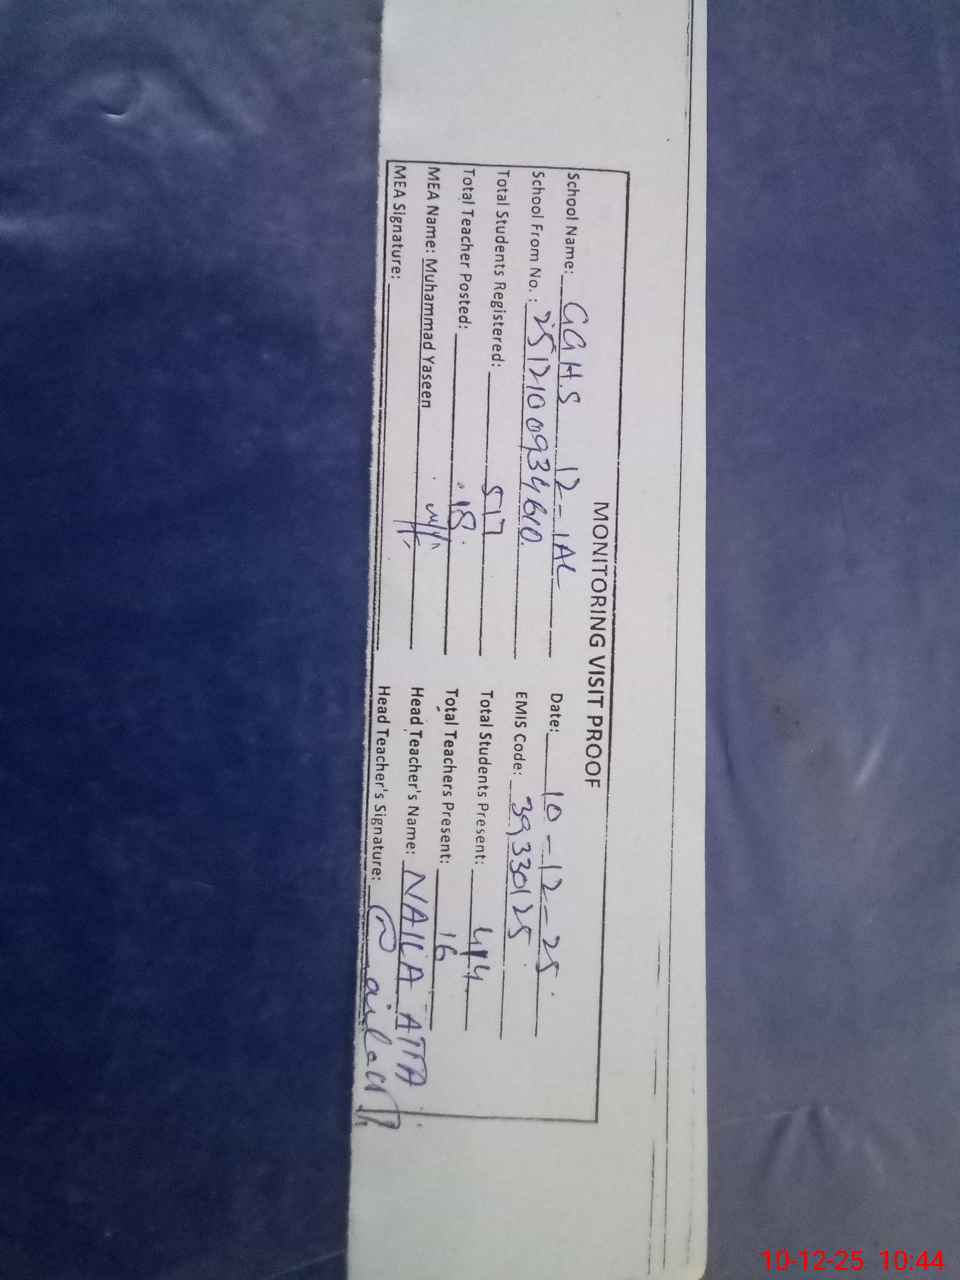 MONITORING VISIT PROOF
School Name: GGHS 12-1AL Date: 10-12-25
School From No. : 2512100934610 EMIS Code: 39330125
Total Students Registered: 517 Total Students Present: 414
Total Teacher Posted: 18 Total Teachers Present: 16
MEA Name: Muhammad Yaseen Head Teacher's Name: NAILA ATTA
MEA Signature: Head Teacher's Signature:
10-12-25 10:44